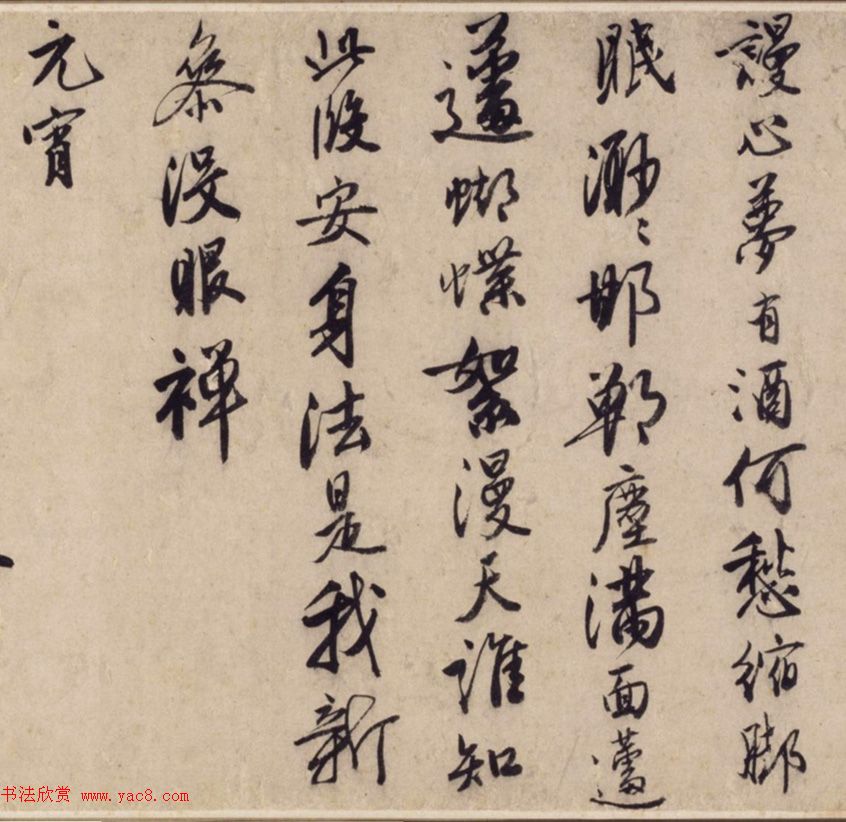 謾心夢有酒何愁縮脚
眠渺〻邯鄲塵滿面蘧
蘧蝴蝶絮漫天誰知
此段安身法是我新
參没眼禪
元宵
书法欣赏 www.yac8.com